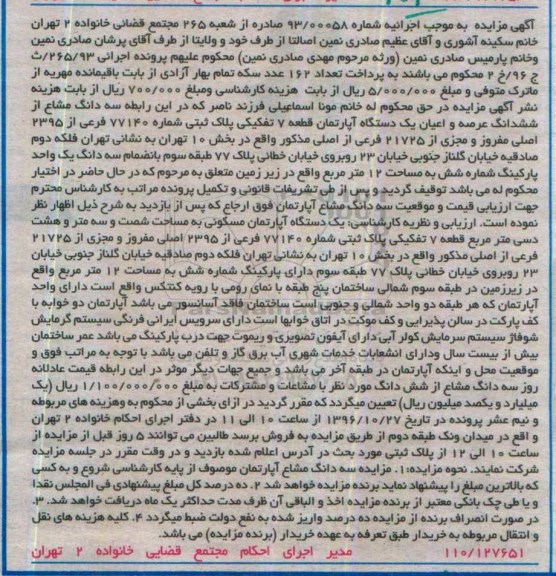 آگهی مزایده به موجب اجرائیه شماره ۹۳/۰۰۰۵۸ صادره از شعبه ۲۶۵ مجتمع قضائی خانواده ۲ تهران
خانم سکینه آشوری و آقای عظیم صادری نمین اصالتا از طرف خود و ولایتا از طرف آقای پرشان صادری نمین
وخانم پارمیس صادری نمین (ورثه مرحوم مهدی صادری نمین) محکوم علیهم پرونده اجرائی ۲۶۵/۹۳/ث
ج ۹۶/خ ۲ محکوم می باشند به پرداخت تعداد ۱۶۲ عدد سکه تمام بهار آزادی از بابت باقیمانده مهریه از
ماترک متوفی و مبلغ ۵/۰۰۰/۰۰۰ ریال از بابت هزینه کارشناسی ومبلغ ۷۰۰/۰۰۰ ریال از بابت هزینه
نشر آگهی مزایده در حق محکوم له خانم مونا اسماعیلی فرزند ناصر که در این رابطه سه دانگ مشاع از
ششدانگ عرصه و اعیان یک دستگاه آپارتمان قطعه ۷ تفکیکی پلاک ثبتی شماره ۷۷۱۴۰ فرعی از ۲۳۹۵
اصلی مفروز و مجزی از ۲۱۷۲۵ فرعی از اصلی مذکور واقع در بخش ۱۰ تهران به نشانی تهران فلکه دوم
صادقیه خیابان گلناز جنوبی خیابان ۲۳ روبروی خیابان خطائی پلاک ۷۷ طبقه سوم بانضمام سه دانگ یک واحد
پارکینگ شماره شش به مساحت ۱۲ متر مربع واقع در زیر زمین متعلق به مرحوم که در حال حاضر در اختیار
محکوم له می باشد توقیف گردید و پس از طی تشریفات قانونی و تکمیل پرونده مراتب به کارشناس محترم
جهت ارزیابی قیمت و موقعیت سه دانگ مشاع آپارتمان فوق ارجاع که پس از بازدید به شرح ذیل اظهار نظر
نموده است. ارزیابی و نظریه کارشناسی: یک دستگاه آپارتمان مسکونی به مساحت شصت و سه متر و هشت
دسی متر مربع قطعه ۷ تفکیکی پلاک ثبتی شماره ۷۷۱۴۰ فرعی از ۲۳۹۵ اصلی مفروز و مجزی از ۲۱۷۲۵
فرعی از اصلی مذکور واقع در بخش ۱۰ تهران به نشانی تهران فلکه دوم صادقیه خیابان گلناز جنوبی خیابان
۲۳ روبروی خیابان خطائی پلاک ۷۷ طبقه سوم دارای پارکینگ شماره شش به مساحت ۱۲ متر مربع واقع
در زیرزمین در طبقه سوم شمالی ساختمان پنج طبقه با نمای رومی با رویه کنتکس واقع است دارای واحد
آپارتمان که هر طبقه دو واحد شمالی و جنوبی است ساختمان فاقد آسانسور می باشد آپارتمان دو خوابه با
کف پارکت در سالن پذیرایی و کف موکت در اتاق خوابها است دارای سرویس ایرانی فرنگی سیستم گرمایش
شوفاژ سیستم سرمایش کولر آبی دارای آیفون تصویری و ریموت جهت درب پارکینگ می باشد عمر ساختمان
بیش از بیست سال ودارای انشعابات خدمات شهری آب برق گاز و تلفن می باشد با توجه به مراتب فوق و
موقعیت محل و اینکه آپارتمان در طبقه آخر می باشد و جمیع جهات دیگر موثر در این رابطه قیمت عادلانه
روز سه دانگ مشاع از شش دانگ مورد نظر با مشاعات و مشترکات به مبلغ ۱/۱۰۰/۰۰۰/۰۰۰ ریال (یک
میلیارد و یکصد میلیون ریال) تعیین میگردد که مقرر گردید در ازای بخشی از محکوم به وهزینه های مربوطه
و نیم عشر پرونده در تاریخ ۱۳۹۶/۱۰/۲۷ از ساعت ۱۰ الی ۱۱ در دفتر اجرای احکام خانواده ۲ تهران
و اقع در میدان ونک طبقه دوم از طریق مزایده به فروش برسد طالبین می توانند ۵ روز قبل از مزایده از
ساعت ۱۰ الی ۱۲ از پلاک ثبتی مورد بحث در آدرس اعلام شده بازدید و در وقت مقرر در جلسه مزایده
شرکت نمایند. نحوه مزایده:۱. مزایده سه دانگ مشاع آپارتمان موصوف از پایه کارشناسی شروع و به کسی
که بالاترین مبلغ را پیشنهاد نماید برنده مزایده خواهد شد ۲. ده درصد کل مبلغ پیشنهادی فی المجلس نقدا
و یا طی چک بانکی معتبر از برنده مزایده اخذ و الباقی آن ظرف مدت حداکثر یک ماه دریافت خواهد شد. ۳.
در صورت انصراف برنده از مزایده ده درصد واریز شده به نفع دولت ضبط میگردد ۴. کلیه هزینه های نقل
و انتقال مربوطه به خریدار طبق تعرفه به عهده خریدار (برنده مزایده) می باشد.
۱۱۰/۱۲۷۶۵۱ مدیر اجرای احکام مجتمع قضایی خانواده ۲ تهران